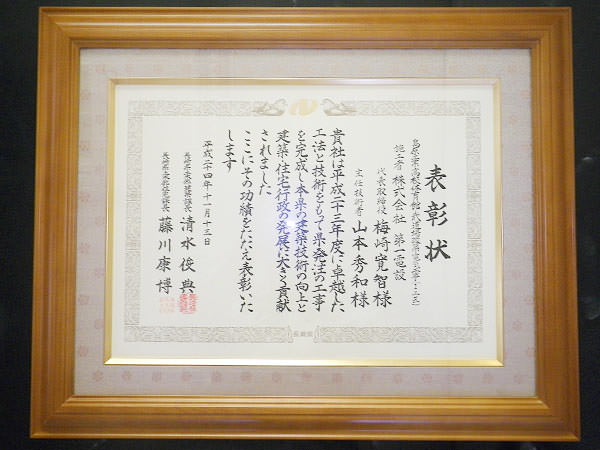 表彰状
施工者 株式会社 第一電設
代表取締役 梅崎寛智様
主任技術者 山本秀和様
貴社は平成二十三年度に卓越した
工法と技術をもって県発注の工事
を完成し本県の建築技術の向上と
建築住宅行政の発展に大きく貢献
されました
ここにその功績をたたえ表彰いた
します
平成二十四年十一月十三日
清水俊典
藤川康博
長崎県